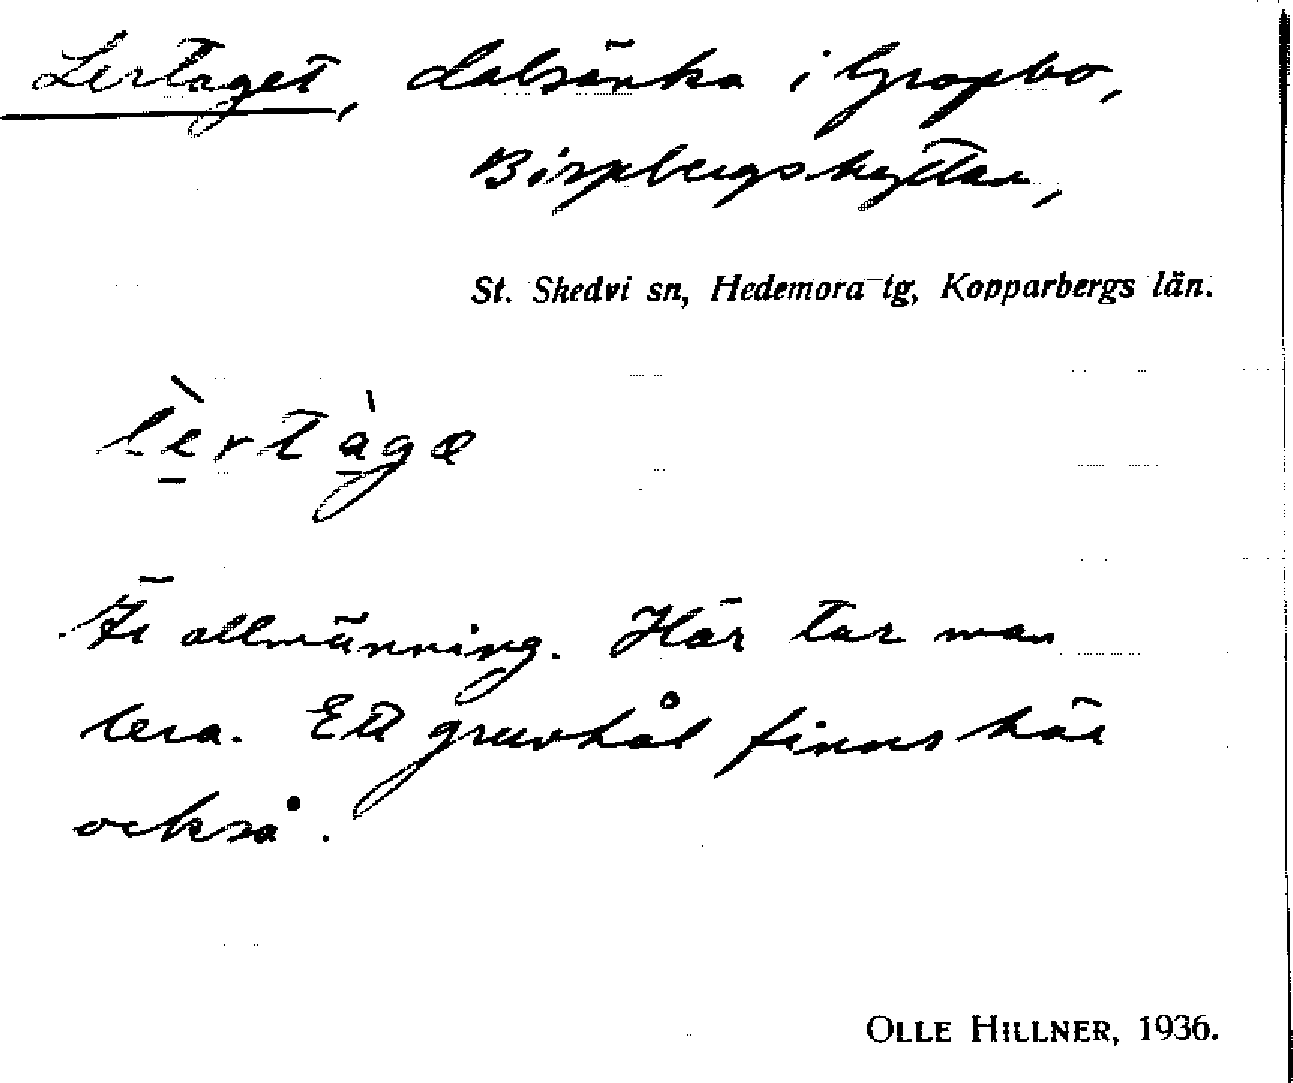 Lertaget, dalsänka i Gropbo,
Bispbergshyttan,
St. Skedvi sn, Hedemora tg, Kopparbergs län.
lè̱rtà̱gæ
Är allmänning. Här tar man
lera. Ett gruvhål finns här
också.
OLLE HILLNER, 1936.